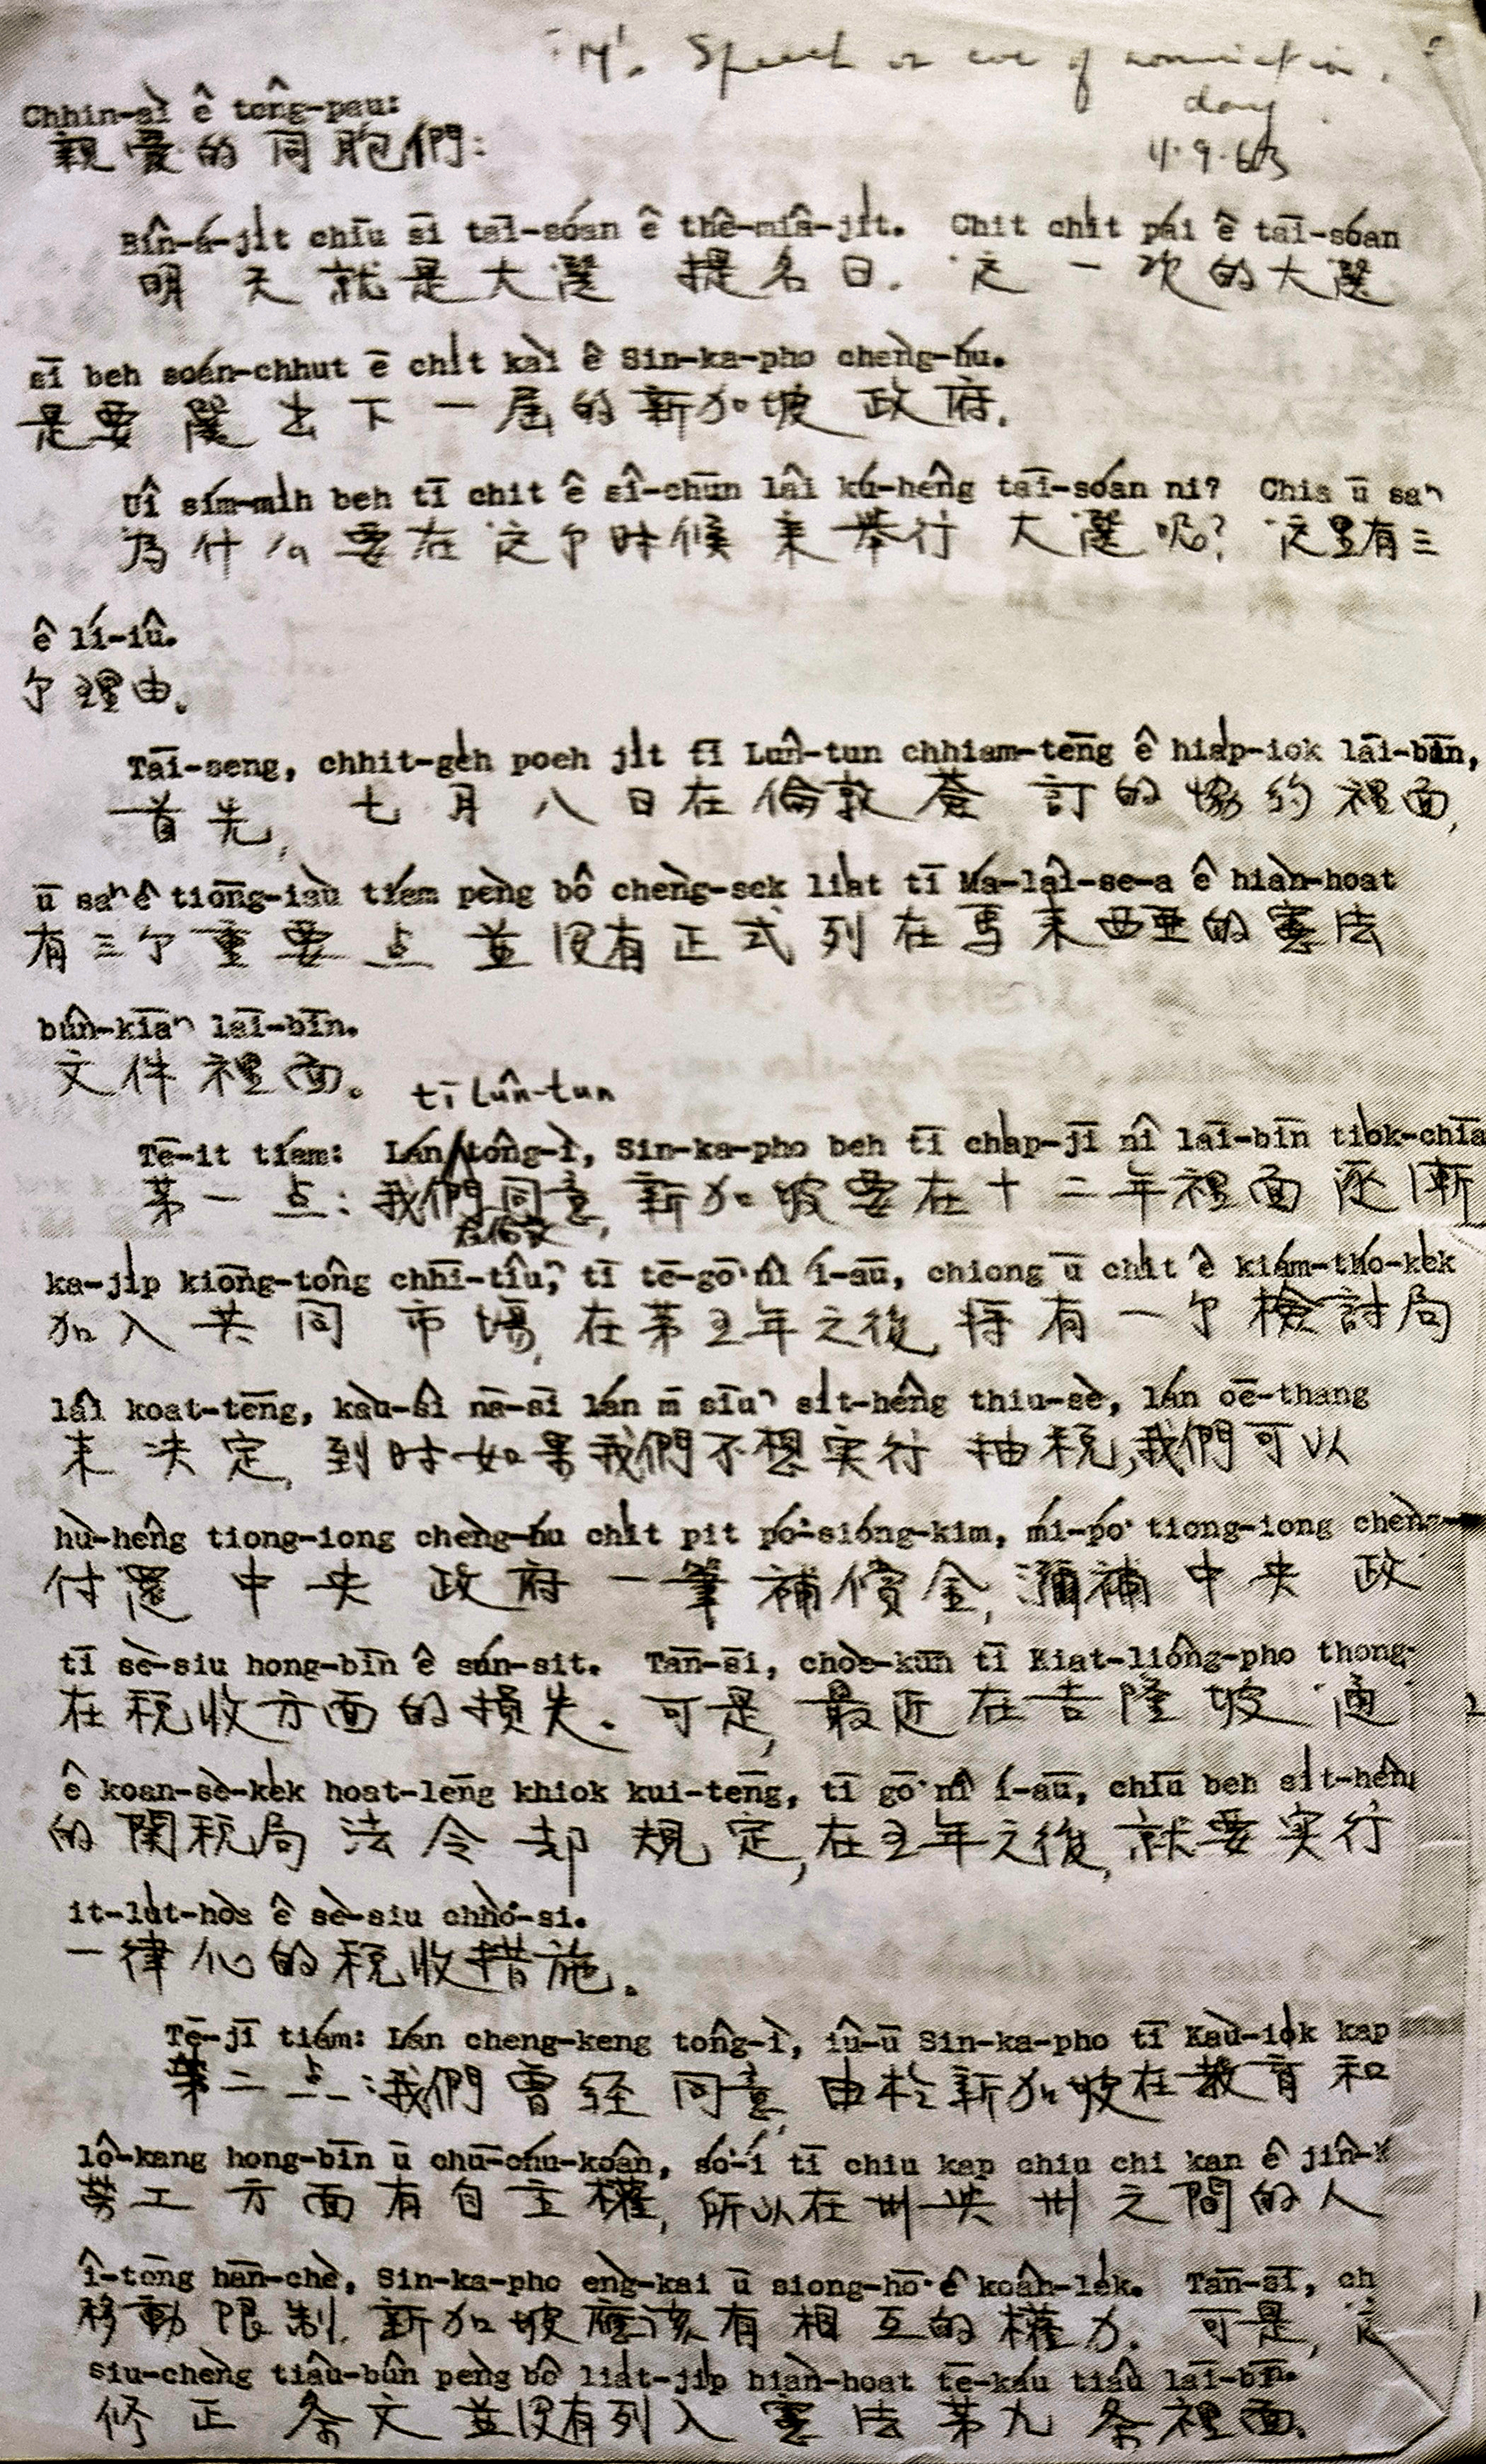 M's Speech on eve of nomination
day
4.9.63
Chhin-ài ê tông-pau:
親愛的同胞們:
Bîn-á-ji̍t chīu sī tāi-sóan ê thê-miâ-ji̍t. Chit chi̍t pái ê tāi-sóan
明天就是大選 提名日. 这一次的大選
sī beh soán-chhut ē chi̍t kài ê Sin-ka-pho chèng-hú.
是要選出下一屆的新加坡政府.
Uī sím-mi̍h beh tī chit ê sî-chūn lâi kú-hêng tāi-sóan ni? Chia ū saⁿ
为什么要在这个时候来举行大選呢? 这里有三
ê lí-iû.
个理由.
Tāi-seng, chhit-ge̍h poeh ji̍t tī Lûn-tun chhiam-tēng ê hia̍p-iok lāi-bīn,
首先, 七月八日在倫敦簽訂的協約裡面,
ū saⁿ ê tiōng-iàu tiám pèng bô chèng-sek lia̍t tī Má-lâi-se-a ê hiàn-hoat
有三个重要点並沒有正式列在馬来西亞的憲法
bûn-kiāⁿ lāi-bīn.
文件裡面.
tī Lûn-tun
Tē-it tiám: Lán tông-ì, Sin-ka-pho beh tī cha̍p-jī nî lāi-bīn tio̍k-chiā
第一点: 我們同意, 新加坡要在十二年裡面逐漸
在倫敦
ka-ji̍p kiōng-tông chhī-tîuⁿ, tī tē-gō͘ nî í-āu, chiong ū chi̍t ê kiám-thó-ke̍k
加入共同市場, 在第五年之後, 将有一个檢討局
lâi koat-tēng, kàu-sî nā-sī lán m̄ sīuⁿ si̍t-hêng thiu-sè, lán oē-thang
来決定, 到时如果我們不想実行抽税, 我們可以
hù-hêng tiong-iong chèng-hú chi̍t pit pó͘-sióng-kim, mí-pó͘ tiong-iong chèng-
付還中央政府一筆補償金, 彌補中央政
tī sè-siu hong-bīn ê sún-sit. Tān-sī, chòe-kūn tī Kiat-liông-pho thong-
在税收方面的损失. 可是, 最近在吉隆坡通
ê koan-sè-ke̍k hoat-lēng khiok kui-tēng, tī gō͘ nî í-āu, chīu beh si̍t-hêng
的関税局法令却規定, 在五年之後, 就要実行
it-lu̍t-hòa ê sè-siu chhò͘-si.
一律化的税收措施.
Tē-jī tiám: Lán cheng-keng tông-ì, iû-û Sin-ka-pho tī Kàu-io̍k kap
第二点: 我們曾经同意, 由於新加坡在教育和
lô-kang hong-bīn ū chū-chú-koân, só͘-í tī chiu kap chiu chi kan ê jîn-
勞工方面有自主權, 所以在州与州之間的人
î-tōng hān-chè, Sin-ka-pho eng-kai ū siong-hō͘ ê koân-le̍k. Tān-sī, ch
移動限制, 新加坡應该有相互的權力. 可是, 这
siu-chèng tiâu-bûn pèng bô lia̍t-ji̍p hiàn-hoat tē-káu tiâu lāi-bīn.
修正条文並沒有列入憲法第九条裡面.